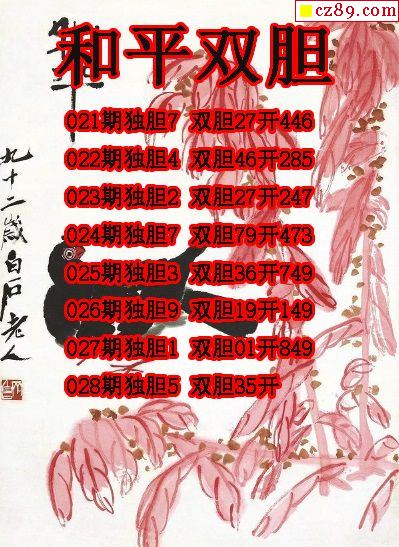 cz89.com
和平双胆
021期独胆7 双胆27开446
022期独胆4 双胆46开285
023期独胆2 双胆27开247
024期独胆7 双胆79开473
025期独胆3 双胆36开749
026期独胆9 双胆19开149
027期独胆1 双胆01开849
028期独胆5 双胆35开
九十二岁白石老人